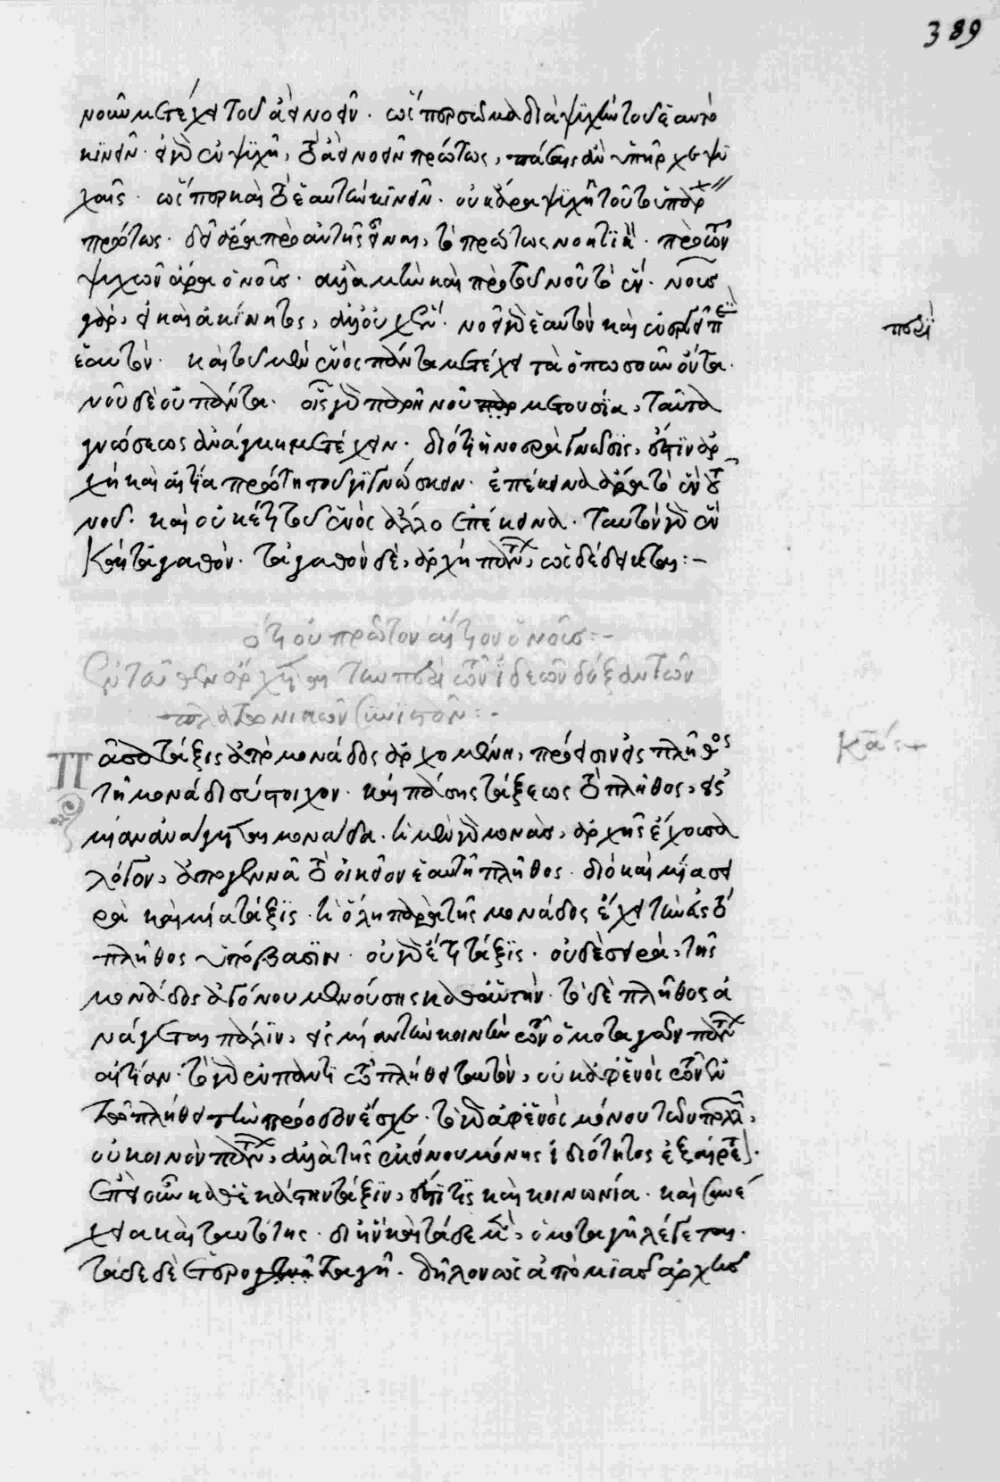 νοῦν μετέχει τοῦ ἀεὶ νοεῖν. ὥσπερ σῶμα διὰ ψυχὴν τοῦ ἑαυτὸ
κινεῖν. εἰ γὰρ ἐν ψυχῇ, τὸ ἀεὶ νοεῖν πρώτως, πάσαις ἂν ὑπῆρχε ψυ
χαῖς. ὥσπερ καὶ τὸ ἑαυτὴν κινεῖν. οὐκ ἄρα ψυχῇ τοῦτο ὑπάρχει
πρώτως. δεῖ ἄρα πρὸ αὐτῆς εἶναι, τὸ πρώτως νοητικόν. πρὸ τῶν
ψυχῶν ἄρα ὁ νοῦς. ἀλλὰ μὴν καὶ πρὸ τοῦ νοῦ τὸ ἕν. νοῦς
γὰρ, εἰ καὶ ἀκίνητος, ἀλλ' οὐχ ἕν. νοεῖ γὰρ ἑαυτὸν καὶ ἐνεργεῖ περὶ
περὶ
ἑαυτόν. καὶ τοῦ μὲν ἑνὸς πάντα μετέχει τὰ ὁπωσοῦν ὄντα.
νοῦ δὲ οὐ πάντα. οἷς γὰρ παρῇ νοῦ μετουσία, ταῦτα
γνώσεως ἀνάγκη μετέχειν. διότι ἡ νοερὰ γνῶσις, ἐστὶν ἀρ
χὴ καὶ αἰτία πρώτη τοῦ γιγνώσκειν. ἐπέκεινα ἄρα τὸ ἓν τοῦ
νοῦ. καὶ οὐκέτι τοῦ ἑνὸς ἄλλο ἐπέκεινα. ταυτὸν γὰρ ἓν
καὶ τἀγαθόν. τἀγαθὸν δὲ, ἀρχὴ πάντων, ὡς δέδεικται:–
ὅτι οὐ πρῶτον αἴτιον ὁ νοῦς:–
πλατωνικῶν
Πᾶσα τάξις ἀπὸ μονάδος ἀρχομένη, πρόεισιν εἰς πλῆθος
τῇ μονάδι σύστοιχον. καὶ πάσης τάξεως τὸ πλῆθος, εἰς
μίαν ἀνάγεται μονάδα. ἡ μὲν γὰρ μονὰς, ἀρχῆς ἔχουσα
λόγον, ἀπογεννᾷ τὸ οἰκεῖον ἑαυτῇ πλῆθος. διὸ καὶ μία σει
ρὰ καὶ μία τάξις. ἡ ὅλη παρὰ τῆς μονάδος ἔχει τὴν εἰς τὸ
πλῆθος ὑπόβασιν. οὐ γὰρ ἔτι τάξις. οὐδὲ σειρὰ, τῆς
μονάδος ἀγόνου μενούσης καθ' αὑτήν. τὸ δὲ πλῆθος ἀ
νάγεται πάλιν, εἰς μίαν τὴν κοινὴν τῶν ὁμοταγῶν πάντων
αἰτίαν. τὸ γὰρ ἐν παντὶ τῷ πλήθει ταυτὸν, οὐκ ἀφ' ἑνὸς τῶν ἐν
τῷ πλήθει τὴν πρόοδον ἔσχε. τὸ γὰρ ἀφ' ἑνὸς μόνου τῶν πολλῶν,
οὐ κοινὸν πάντων, ἀλλὰ τῆς ἐκείνου μόνης ἰδιότητος ἐξαίρετον.
ἐπεὶ οὖν καθ' ἑκάστην τάξιν, ἐστί τις καὶ κοινωνία. καὶ συνέ
χεια καὶ ταυτότης. δι' ἣν καὶ τάδε μὲν, ὁμοταγῆ λέγεται.
τάδε δὲ ἑτεροταγῆ. δῆλον ὡς ἀπὸ μιᾶς ἀρχῆς